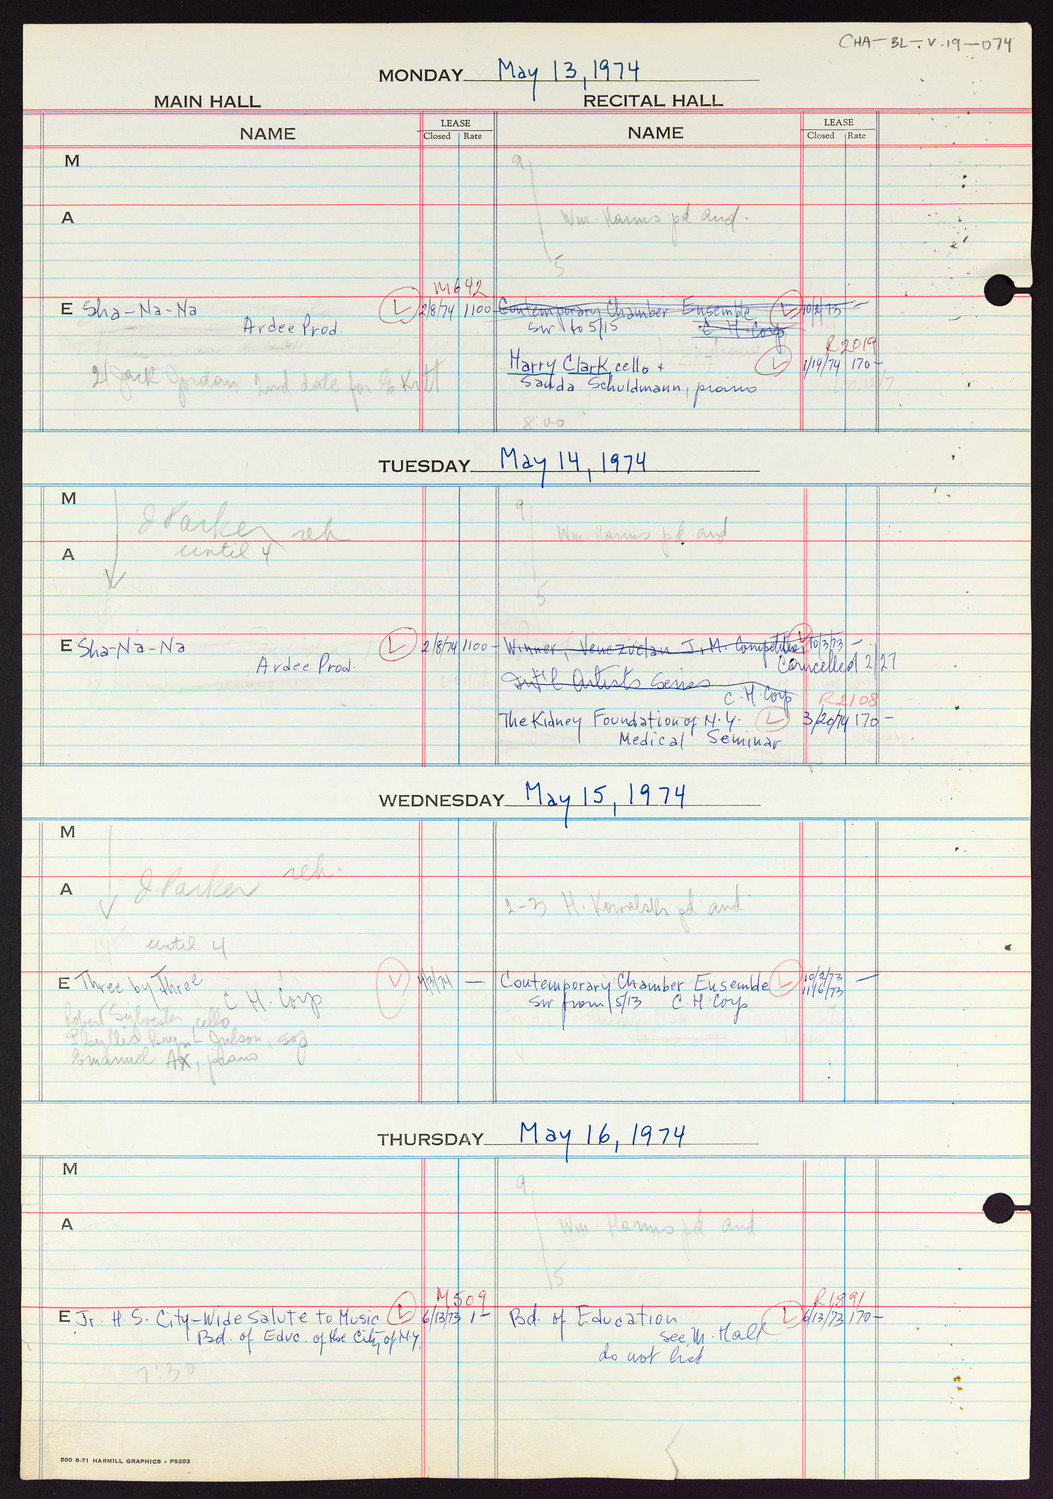 CHA-BL-V.19-074
MONDAY May 13, 1974
MAIN HALL RECITAL HALL
NAME LEASE Closed Rate NAME LEASE Closed Rate
M 9
A Wm. Harms pd aud.
5
M642
E Sha-Na-Na L 2/8/74 1100- Contemporary Chamber Ensemble L 10/2/73 -
Ardee Prod. sw to 5/15 C.H. Corp
R2019
2) Jack Gordan 2nd date for E. Kitt Harry Clark, cello + L 1/19/74 170-
Sanda Schuldmann, piano
8:00
TUESDAY May 14, 1974
M 9
J Parker reh Wm Harms pd aud
A until 4
5
E Sha-Na-Na L 2/8/74 1100- Winner, Venezuelan J.M. Competition L 10/3/73 -
Ardee Prod. Cancelled 2/27
Int'l Artists Series
C.H. Corp R2108
The Kidney Foundation of N.Y. L 3/20/74 170-
Medical Seminar
WEDNESDAY May 15, 1974
M
A J. Parker reh. 2-3 H. Kowalski pd aud
until 4
E Three by Three L 4/3/74 — Contemporary Chamber Ensemble L 10/2/73 —
C.H. Corp 11/6/73
sw from 5/13 C.H. Corp
Robert Sylvester, cello
Phyllis Bryn-Julson, sop
Emanuel Ax, piano
THURSDAY May 16, 1974
M 9
A Wm. Harms pd aud
5
M509 R1891
E Jr. H.S. City-Wide Salute to Music L 6/13/73 1- Bd. of Education L 6/13/73 170-
Bd. of Educ. of the City of N.Y. see M. Hall
do not list
7:30
500 8-71 HARMILL GRAPHICS - P5203